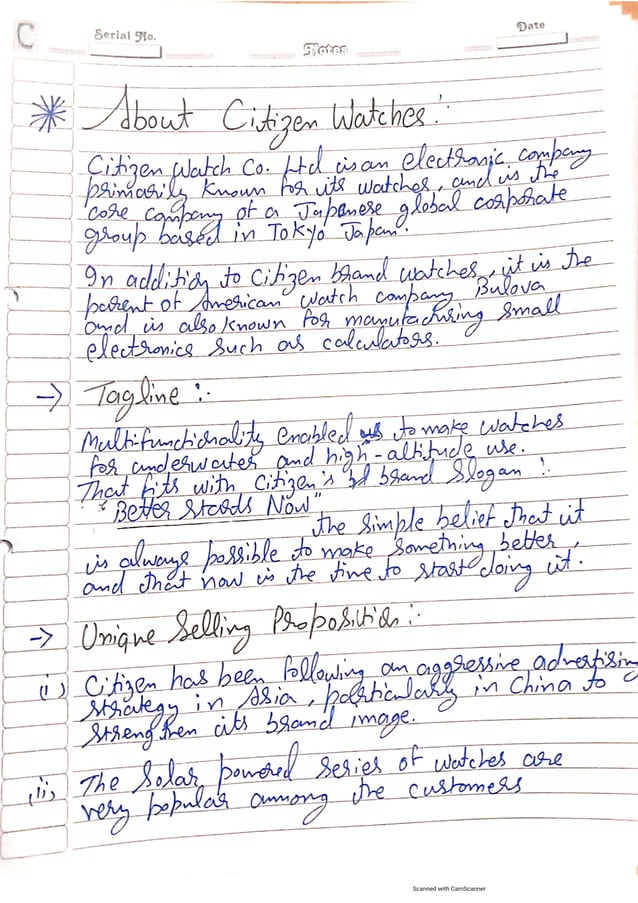 C
Serial No.
Notes
Date
About Citizen Watches :-
Citizen Watch Co. Ltd is an electronic company
primarily known for its watches, and is the
core company of a Japanese global corporate
group based in Tokyo Japan.
In addition to Citizen brand watches, it is the
parent of American watch company Bulova
and is also known for manufacturing small
electronics such as calculators.
→ Tagline :-
Multifunctionality enabled us to make watches
for underwater and high-altitude use.
That fits with Citizen's brand Slogan :
"Better Starts Now"
the simple belief that it
is always possible to make something better,
and that now is the time to start doing it.
→ Unique Selling Proposition :-
(i) Citizen has been following an aggressive advertising
strategy in Asia, particularly in China to
strengthen its brand image.
(ii) The Solar powered series of watches are
very popular among the customers
Scanned with CamScanner